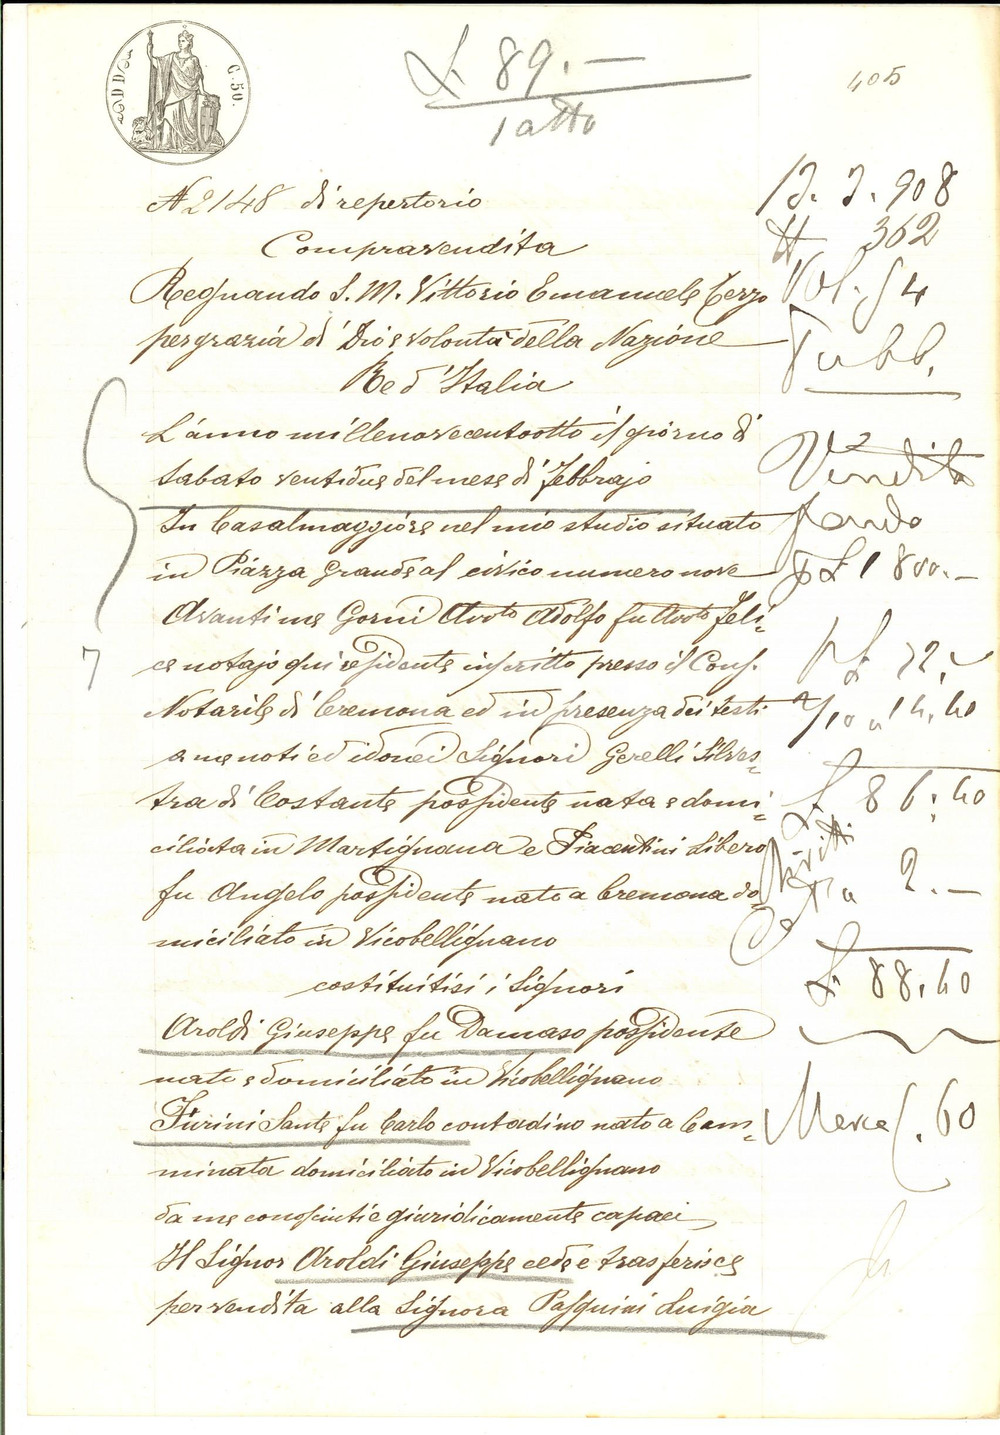 C. 50.
£. 89. —
1 atto
405
N 2148 di repertorio
Compravendita
Regnando S. M. Vittorio Emanuele Terzo
per grazia di Dio e volontà della Nazione
Re d'Italia
L'anno millenovecentootto il giorno di
sabato ventidue del mese di Febbrajo
In Casalmaggiore nel mio studio situato
in Piazza Grande al civico numero nove
Avanti me Gorni Avvto Adolfo fu Avvto Feli=
ce notajo qui residente inscritto presso il Cons.
Notarile di Cremona ed in presenza dei testi
a me noti ed idonei Signori Gerelli Silves=
tra di Costante possidente nata e domi=
ciliata in Martignana e Piacentini Libero
fu Angelo possidente nato a Cremona do=
miciliato in Vicobellignano
costituitisi i Signori
Aroldi Giuseppe fu Damaso possidente
nato e domiciliato in Vicobellignano
Furini Sante fu Carlo contadino nato a Cam=
minata domiciliato in Vicobellignano
da me conosciuti e giuridicamente capaci
Il Signor Aroldi Giuseppe cede e trasferisce
per vendita alla Signora Pasquini Luigia
13. 3. 908
N 362
Vol. 54
Pubb.
Vendita
fondo
p £ 1800. —
£ 72. —
2/10 a 14,40
£. 86,40
Diritti
2. —
£. 88,40
Merce £. 60
7